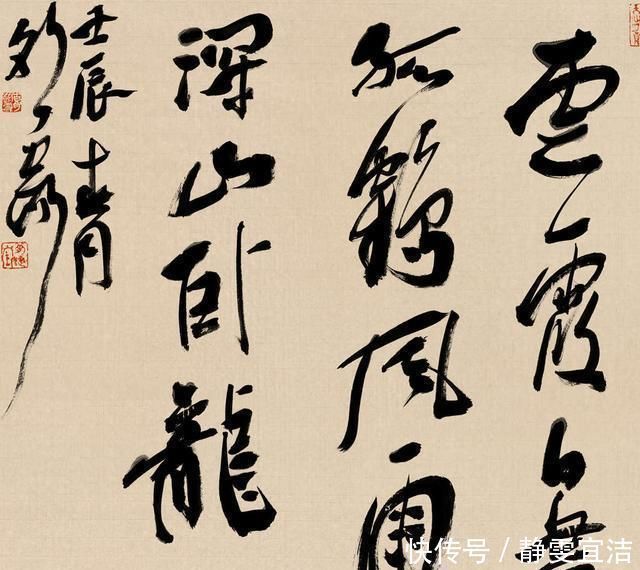 雲霞白
孤鶴風雨
深山卧龍
壬辰
快传号 / 静雯宜洁